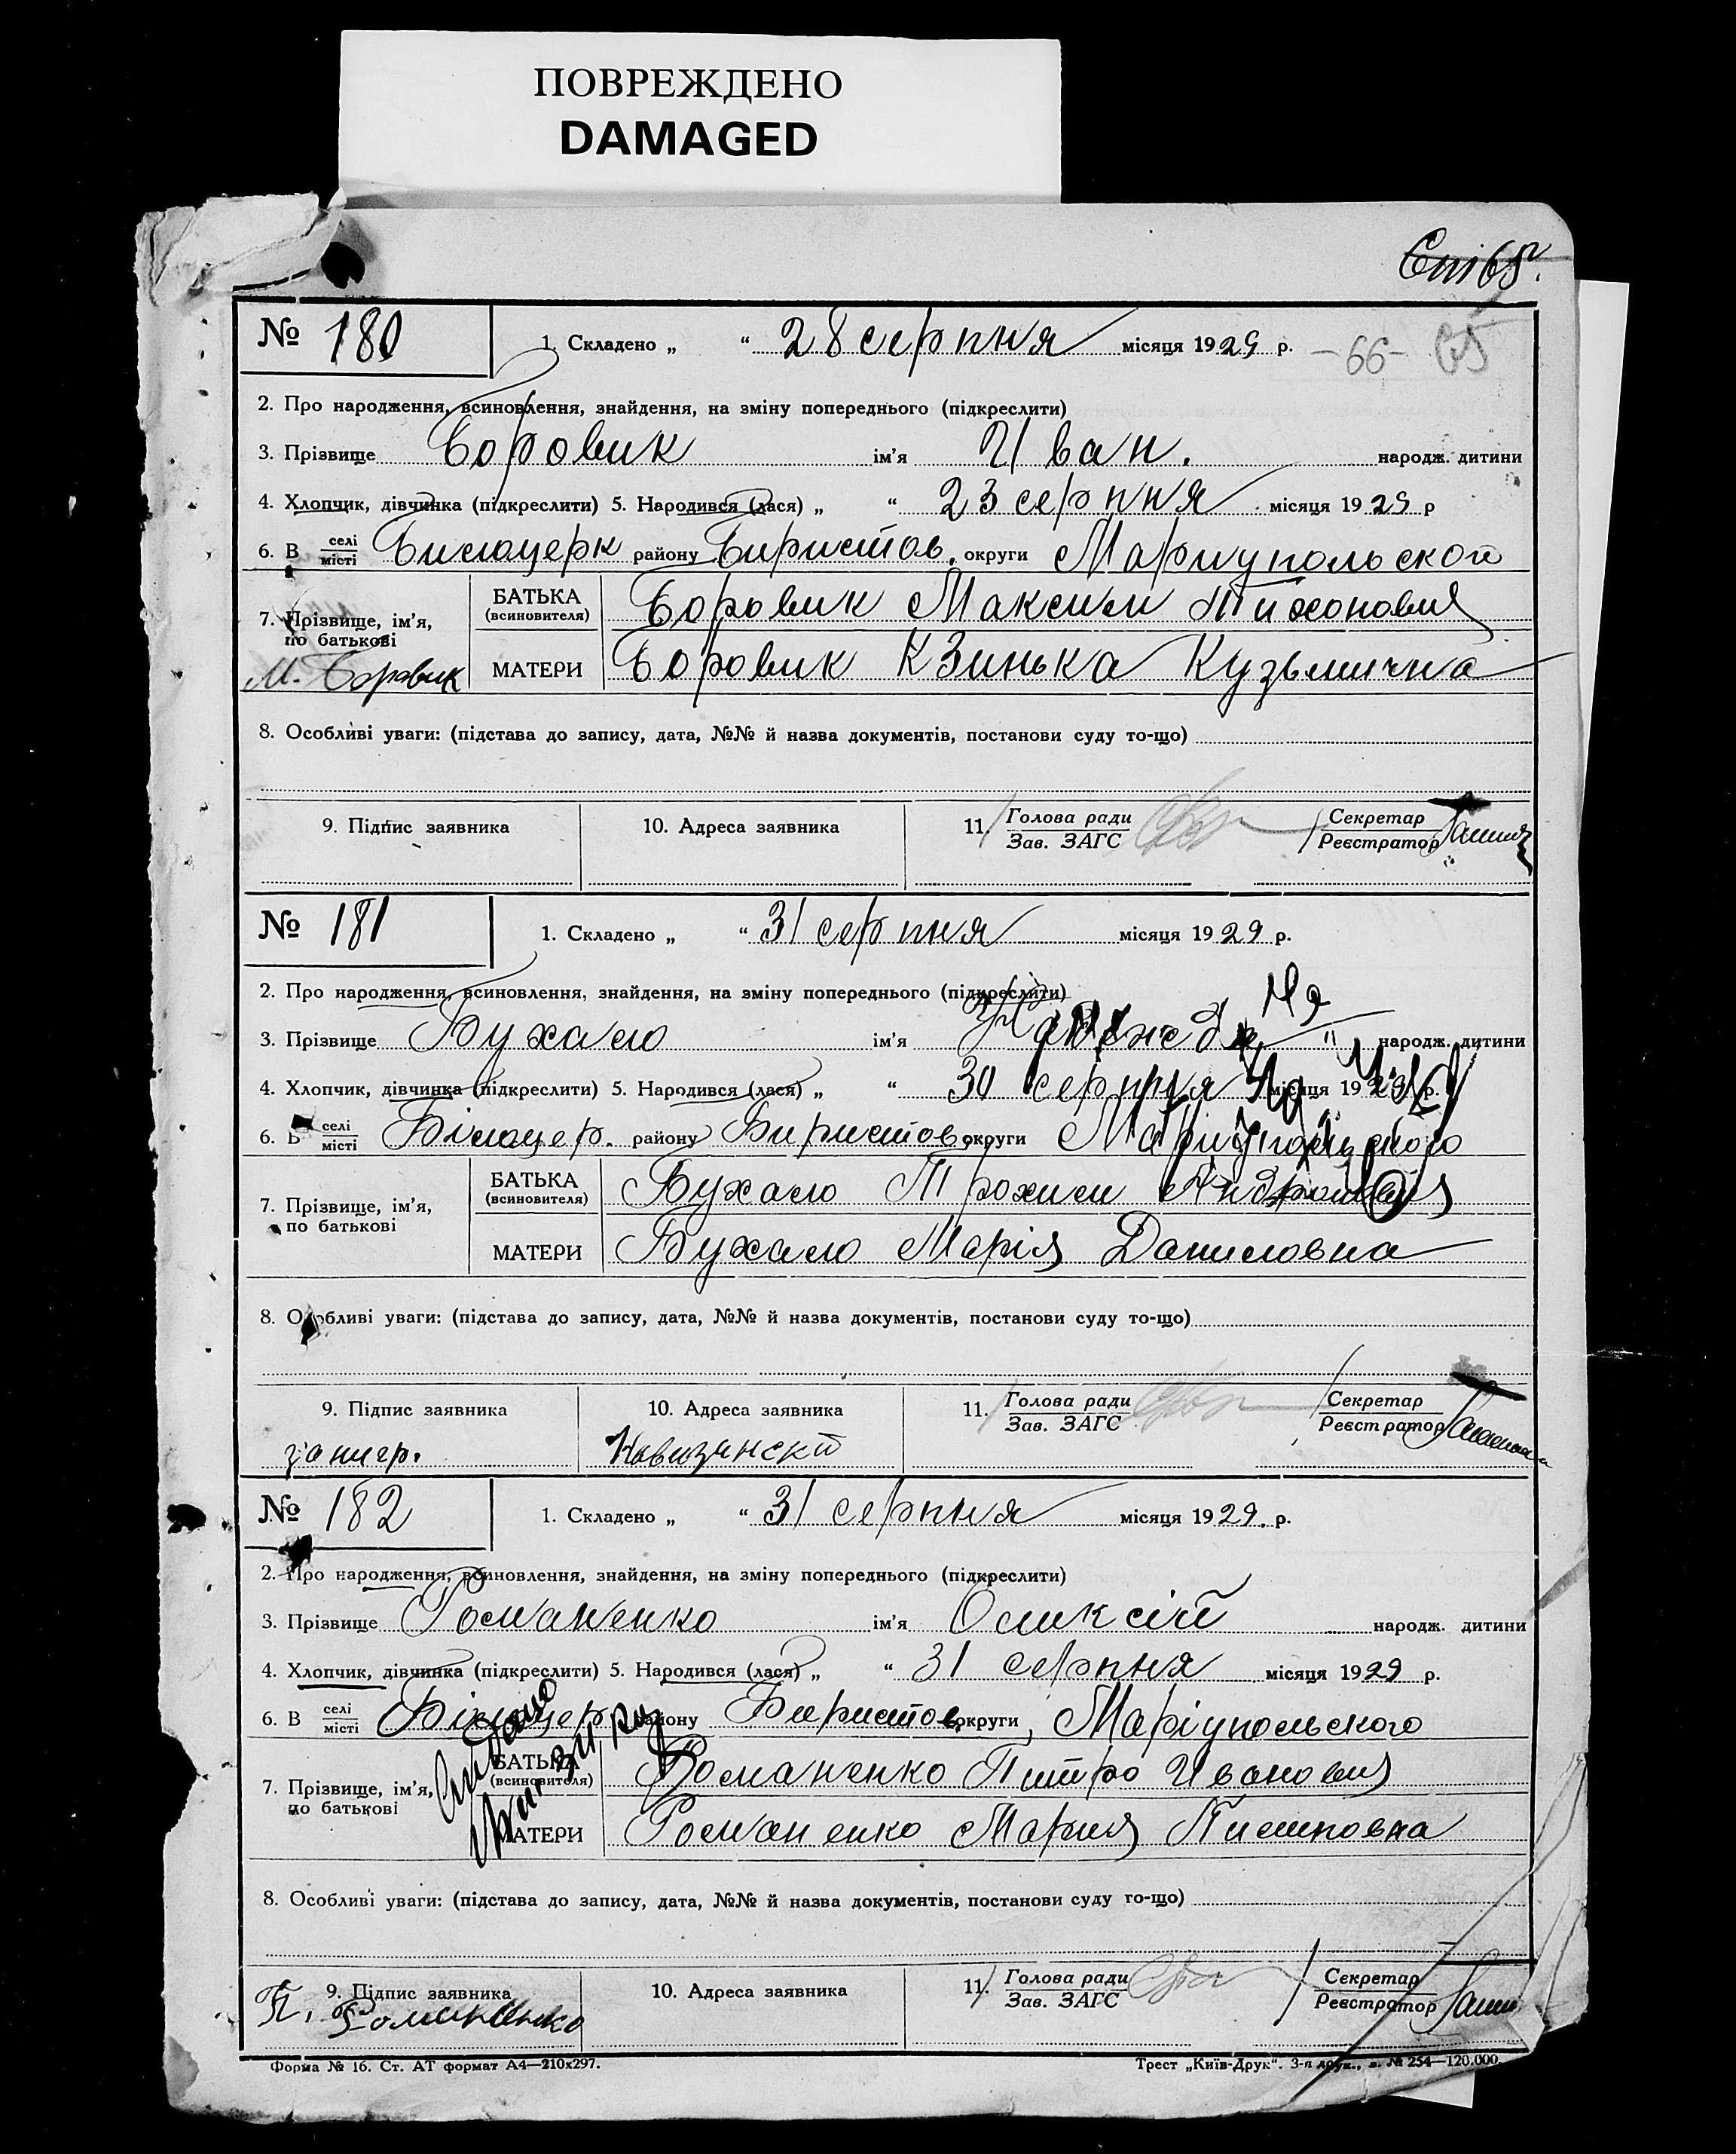 ПОВРЕЖДЕНО
DAMAGED
№ 180 1. Складено „ “ 28 серпня місяця 1929 р. -66- 65
2. Про народження, всиновлення, знайдення, на зміну попереднього (підкреслити)
3. Прізвище Боровик ім’я Иван. народж. дитини
4. Хлопчик, дівчинка (підкреслити) 5. Народився (лася) „ “ 23 серпня місяця 1929 р
6. В селі місті Билоцерк району Биристов. округи Мариупольской
7. Прізвище, ім’я, по батькові БАТЬКА (всиновителя) Боровик Максим Тихонович
М. Боровик МАТЕРИ Боровик Кзинька Кузьмична
8. Особливі уваги: (підстава до запису, дата, №№ й назва документів, постанови суду то-що)
9. Підпис заявника 10. Адреса заявника 11. Голова ради Зав. ЗАГС Секретар Реєстратор
№ 181 1. Складено „ “ 31 серпня місяця 1929 р.
2. Про народження, всиновлення, знайдення, на зміну попереднього (підкреслити)
3. Прізвище Бухало ім’я народж. дитини
4. Хлопчик, дівчинка (підкреслити) 5. Народився (лася) „ “ 30 серпня місяця 1929 р.
6. В селі місті Білоцер. району Биристов. округи Маріупольского
7. Прізвище, ім’я, по батькові БАТЬКА (всиновителя) Бухало Трохим
МАТЕРИ Бухало Марія Даниловна
8. Особливі уваги: (підстава до запису, дата, №№ й назва документів, постанови суду то-що)
9. Підпис заявника 10. Адреса заявника 11. Голова ради Зав. ЗАГС Секретар Реєстратор
№ 182 1. Складено „ “ 31 серпня місяця 1929. р.
2. Про народження, всиновлення, знайдення, на зміну попереднього (підкреслити)
3. Прізвище Романенко ім’я Оликсій народж. дитини
4. Хлопчик, дівчинка (підкреслити) 5. Народився (лася) „ “ 31 серпня місяця 1929 р.
6. В селі місті Білоцер. району Биристов. округи Маріупольского
7. Прізвище, ім’я, по батькові БАТЬКА (всиновителя) Романенко Питро Иванович
МАТЕРИ Романенко Мария
8. Особливі уваги: (підстава до запису, дата, №№ й назва документів, постанови суду то-що)
9. Підпис заявника 10. Адреса заявника 11. Голова ради Зав. ЗАГС Секретар Реєстратор
П. Романенко
Форма № 16. Ст. АТ формат А4—210х297. Трест „Київ-Друк“. 3-я друк., з. № 254—120.000.